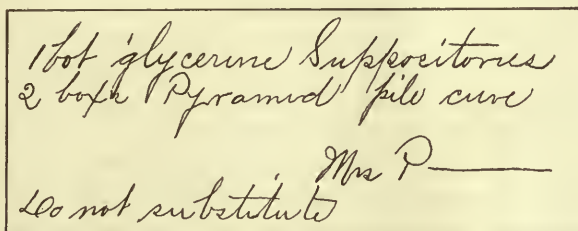 1 bot glycerine Suppositories
2 boxes Pyramid pile cure
Mrs P———
Do not substitute